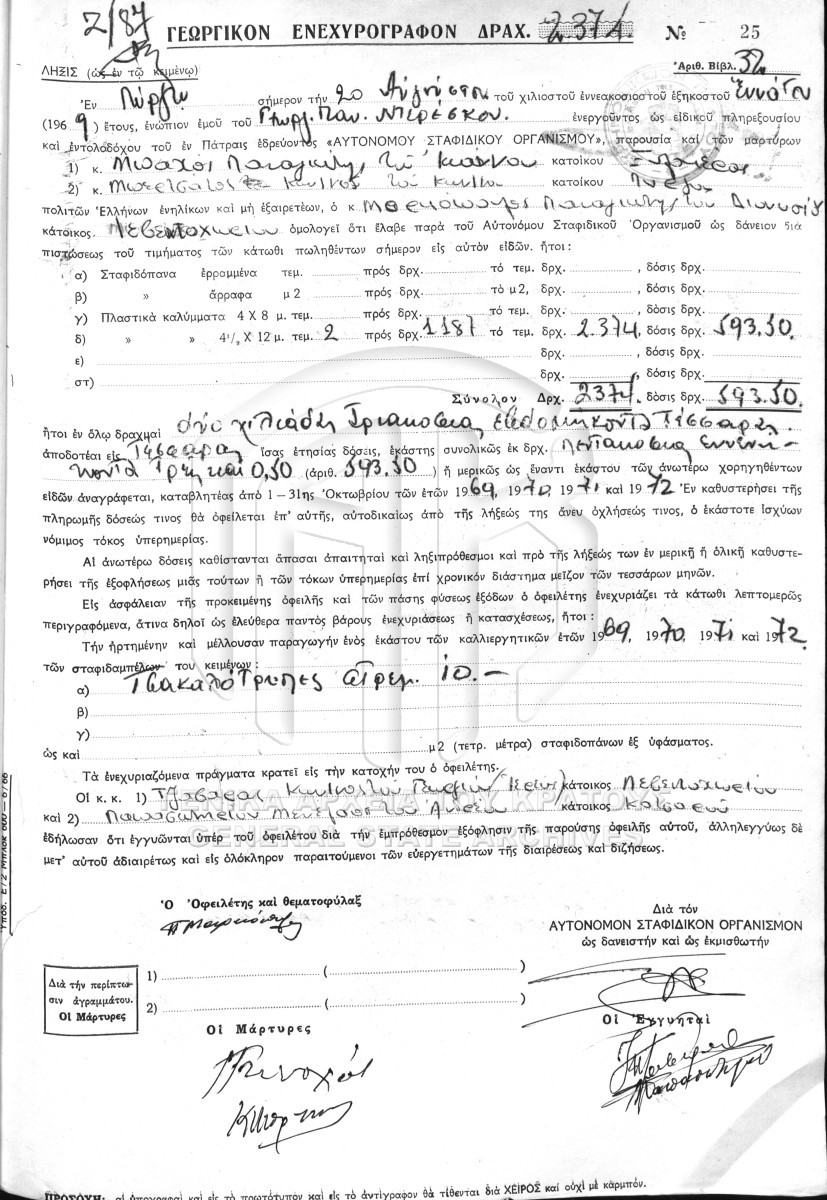 2/87
ΓΕΩΡΓΙΚΟΝ ΕΝΕΧΥΡΟΓΡΑΦΟΝ ΔΡΑΧ. 2.374 № 25
ΛΗΞΙΣ (ὡς ἐν τῷ κειμένῳ) Ἀριθ. Βιβλ. 32
Ἐν Πύργῳ σήμερον τὴν 20 Αὐγούστου τοῦ χιλιοστοῦ ἐννεακοσιοστοῦ ἑξηκοστοῦ Ἐννάτου
(1969) ἔτους, ἐνώπιον ἐμοῦ τοῦ Γεωργ. Παν. ἐνεργοῦντος ὡς εἰδικοῦ πληρεξουσίου
καὶ ἐντολοδόχου τοῦ ἐν Πάτραις ἑδρεύοντος «ΑΥΤΟΝΟΜΟΥ ΣΤΑΦΙΔΙΚΟΥ ΟΡΓΑΝΙΣΜΟΥ», παρουσίᾳ καὶ τῶν μαρτύρων
1) κ. Παναγιώτης τοῦ Ἰωάννου κατοίκου
2) κ. τοῦ κατοίκου Πύργου
πολιτῶν Ἑλλήνων ἐνηλίκων καὶ μὴ ἐξαιρετέων, ὁ κ. Μαρκόπουλος Παναγιώτης τοῦ Διονυσίου
κάτοικος Λεβεντοχωρίου ὁμολογεῖ ὅτι ἔλαβε παρὰ τοῦ Αὐτονόμου Σταφιδικοῦ Ὀργανισμοῦ ὡς δάνειον διὰ
πιστώσεως τοῦ τιμήματος τῶν κάτωθι πωληθέντων σήμερον εἰς αὐτὸν εἰδῶν. ἤτοι:
α) Σταφιδόπανα ἐρραμμένα τεμ. πρός δρχ. τό τεμ. δρχ. , δόσις δρχ.
β) » ἄρραφα μ2 πρός δρχ. τό μ2, δρχ. , δόσις δρχ.
γ) Πλαστικά καλύμματα 4 Χ 8 μ. τεμ. πρός δρχ. τό τεμ. δρχ. , δόσις δρχ.
δ) » » 4¹/₂ Χ 12 μ. τεμ. 2 πρός δρχ. 1187 τό τεμ. δρχ. 2.374, δόσις δρχ. 593.50.
ε) δρχ. , δόσις δρχ.
στ) δρχ. , δόσις δρχ.
Σύνολον Δρχ. 2374 δόσις δρχ. 593.50.
ἤτοι ἐν ὅλῳ δραχμαί δύο χιλιάδες Τριακόσιαι ἑβδομήκοντα Τέσσαρες.
ἀποδοτέαι εἰς Τέσσαρας ἴσας ἐτησίας δόσεις, ἑκάστης συνολικῶς ἐκ δρχ. Πεντακόσιαι ἐννενή-
κοντα τρεῖς καὶ 0,50 (ἀριθ. 593.50) ἢ μερικῶς ὡς ἔναντι ἑκάστου τῶν ἀνωτέρω χορηγηθέντων
εἰδῶν ἀναγράφεται, καταβλητέας ἀπό 1 – 31ης Ὀκτωβρίου τῶν ἐτῶν 1969, 1970, 1971 καὶ 1972 Ἐν καθυστερήσει τῆς
πληρωμῆς δόσεώς τινος θὰ ὀφείλεται ἐπ' αὐτῆς, αὐτοδικαίως ἀπό τῆς λήξεώς της ἄνευ ὀχλήσεώς τινος, ὁ ἑκάστοτε ἰσχύων
νόμιμος τόκος ὑπερημερίας.
Αἱ ἀνωτέρω δόσεις καθίστανται ἅπασαι ἀπαιτηταὶ καὶ ληξιπρόθεσμοι καὶ πρὸ τῆς λήξεώς των ἐν μερικῇ ἢ ὁλικῇ καθυστε-
ρήσει τῆς ἐξοφλήσεως μιᾶς τούτων ἢ τῶν τόκων ὑπερημερίας ἐπὶ χρονικὸν διάστημα μεῖζον τῶν τεσσάρων μηνῶν.
Εἰς ἀσφάλειαν τῆς προκειμένης ὀφειλῆς καὶ τῶν πάσης φύσεως ἐξόδων ὁ ὀφειλέτης ἐνεχυριάζει τὰ κάτωθι λεπτομερῶς
περιγραφόμενα, ἅτινα δηλοῖ ὡς ἐλεύθερα παντὸς βάρους ἐνεχυριάσεως ἢ κατασχέσεως, ἤτοι :
Τὴν ἠρτημένην καὶ μέλλουσαν παραγωγήν ἑνός ἑκάστου τῶν καλλιεργητικῶν ἐτῶν 1969, 1970, 1971 καὶ 1972.
τῶν σταφιδαμπέλων του κειμένων :
α) Τσακαλότρυπες στρεμ. 10.–
β)
γ)
ὡς καὶ μ2 (τετρ. μέτρα) σταφιδοπάνων ἐξ ὑφάσματος.
Τὰ ἐνεχυριαζόμενα πράγματα κρατεῖ εἰς τὴν κατοχήν του ὁ ὀφειλέτης.
Οἱ κ. κ. 1) κάτοικος Λεβεντοχωρίου
καὶ 2) τοῦ Ἀνδρέα κάτοικος
ἐδήλωσαν ὅτι ἐγγυῶνται ὑπὲρ τοῦ ὀφειλέτου διὰ τὴν ἐμπρόθεσμον ἐξόφλησιν τῆς παρούσης ὀφειλῆς αὐτοῦ, ἀλληλεγγύως δὲ
μετ' αὐτοῦ ἀδιαιρέτως καὶ εἰς ὁλόκληρον παραιτούμενοι τῶν εὐεργετημάτων τῆς διαιρέσεως καὶ διζήσεως.
ΓΕΝΙΚΑ ΑΡΧΕΙΑ ΤΟΥ ΚΡΑΤΟΥΣ
GENERAL STATE ARCHIVES
Ὁ Ὀφειλέτης καὶ θεματοφύλαξ
Διὰ τόν
ΑΥΤΟΝΟΜΟΝ ΣΤΑΦΙΔΙΚΟΝ ΟΡΓΑΝΙΣΜΟΝ
ὡς δανειστήν καὶ ὡς ἐκμισθωτήν
Διὰ τήν περίπτω-
σιν ἀγραμμάτου.
Οἱ Μάρτυρες
1) ( )
2) ( )
Οἱ Μάρτυρες
Οἱ Ἐγγυηταί
Ὑποδ. Ε/2 Μπλοκ 600 – 6/66
ΠΡΟΣΟΧΗ: αἱ ὑπογραφαὶ καὶ εἰς τὸ πρωτότυπον καὶ εἰς τὸ ἀντίγραφον θὰ τίθενται διὰ ΧΕΙΡΟΣ καὶ οὐχὶ μὲ καρμπόν.